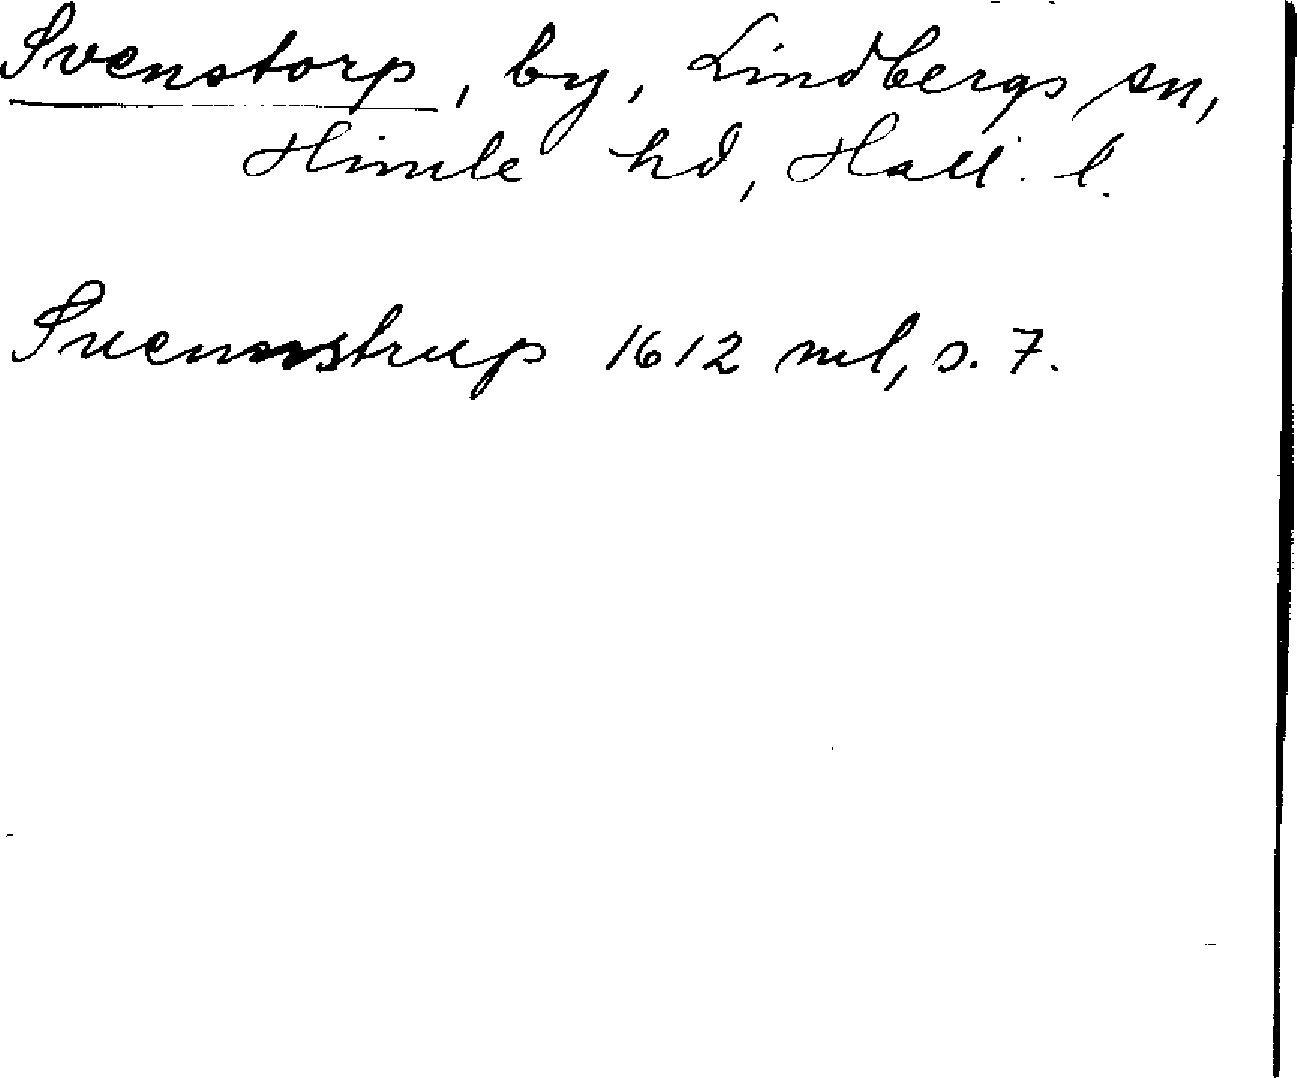 Svenstorp, by, Lindbergs sn,
Himle hd, Hall. l.
Suenstrup 1612 ml, s. 7.